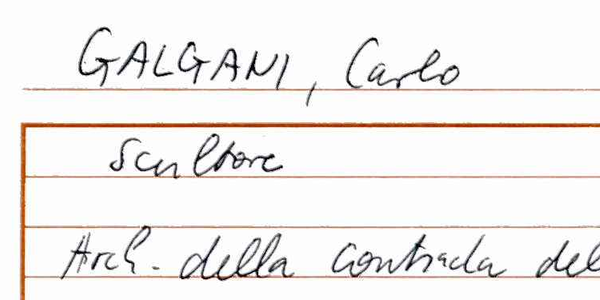 GALGANI, Carlo
Scultore
Arch. della Contrada del